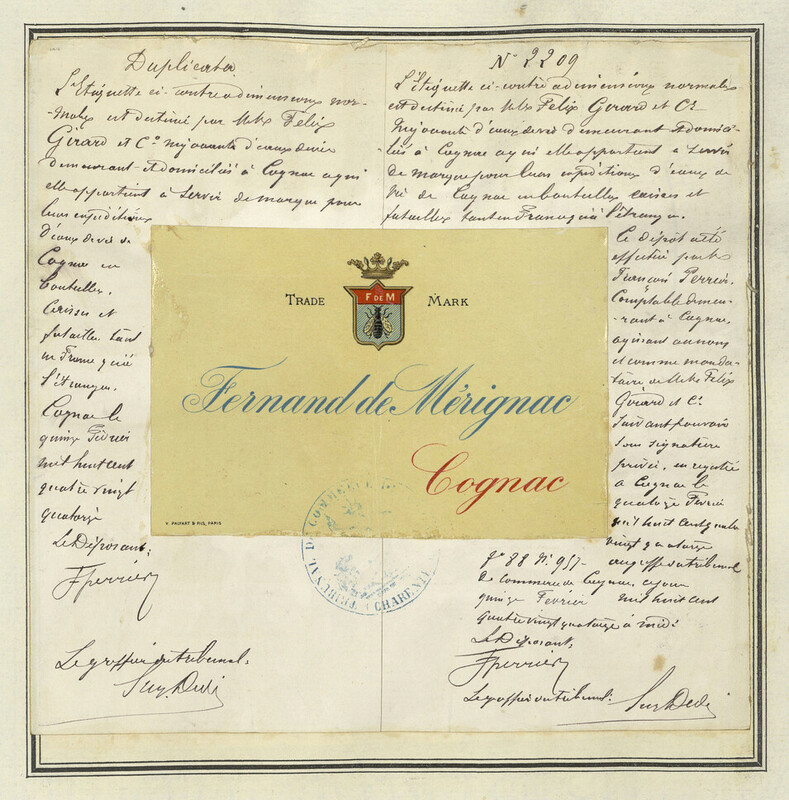 Duplicata
L'Etiquette ci-contre a dimensions nor-
males est destiné par M.M. Félix
Girard et Co négociants d'eaux de vie
demeurant et domiciliés à Cognac à qui
elle appartient à servir de marque pour
leurs expéditions
d'eaux de vie de
Cognac en
bouteilles,
Caisses et
futailles tant
en France qu'à
l'étranger.
Cognac le
quinze Février
mil huit cent
quatre vingt
quatorze
Le Déposant:
FPerrier
Le greffier du tribunal:
No 2209
L'Etiquette ci-contre a dimensions normales
est destiné par M.M. Félix Girard et Ce
négociants d'eaux de vie demeurant et domici-
liés à Cognac à qui elle appartient à servir
de marque pour leurs expéditions d'eaux de
vie de Cognac en bouteilles caisses et
futailles tant en France qu'à l'étranger.
Ce dépôt a été
effectué par M.
François Perrier,
Comptable demeu-
rant à Cognac,
agissant au nom
et comme manda-
taire de M.M. Félix
Girard et Ce
suivant pouvoir
sous signature
privée, enregistré
à Cognac le
quatorze Février
mil huit cent quatre
vingt quatorze
fo 88 No 957 au greffe du tribunal
de commerce de Cognac, ce jour
quinze Février mil huit cent
quatre vingt quatorze à midi
Le Déposant:
FPerrier
Le greffier du tribunal:
TRADE MARK
F DE M
Fernand de Mérignac
Cognac
V. PALYART & FILS, PARIS
TRIBUNAL DE COMMERCE DE
CHARENTE